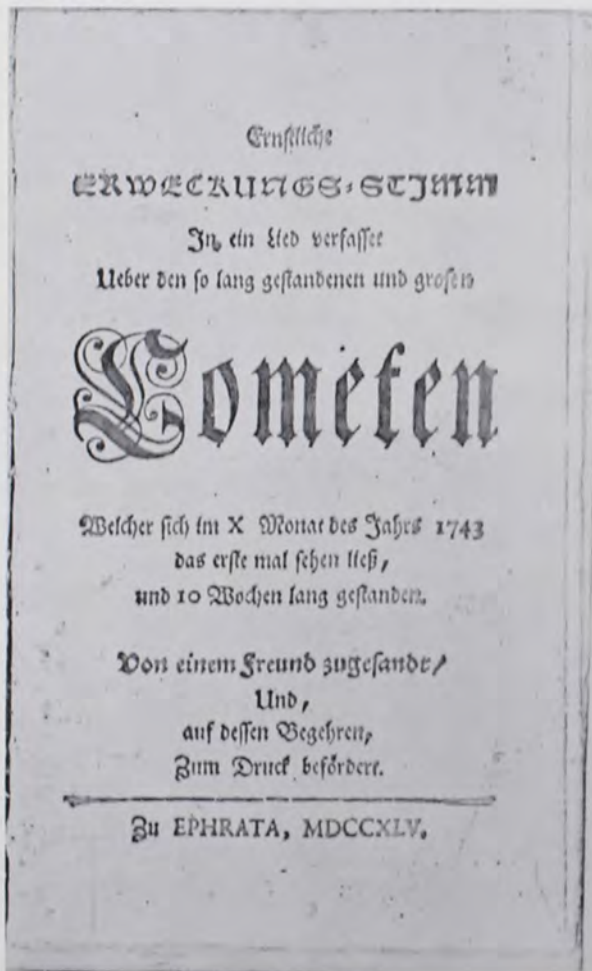 Ernstliche
ERWECKUNGS-STJMM
Jn ein Lied verfasset
Ueber den so lang gestandenen und grosen
Cometen
Welcher sich im X Monat des Jahrs 1743
das erste mal sehen ließ,
und 10 Wochen lang gestanden.
Von einem Freund zugesandt/
Und,
auf dessen Begehren,
Zum Druck befördert.
Zu EPHRATA, MDCCXLV.